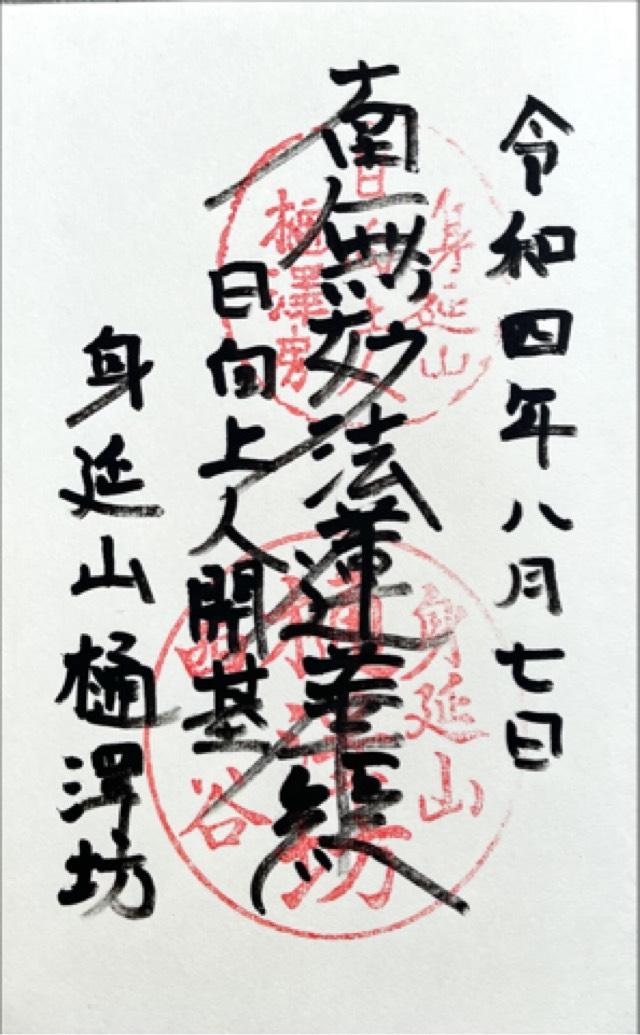 令和四年八月七日
南無妙法蓮華経
日向上人開基
身延山樋澤坊
身延山
樋澤坊
身延山
樋澤坊
西谷